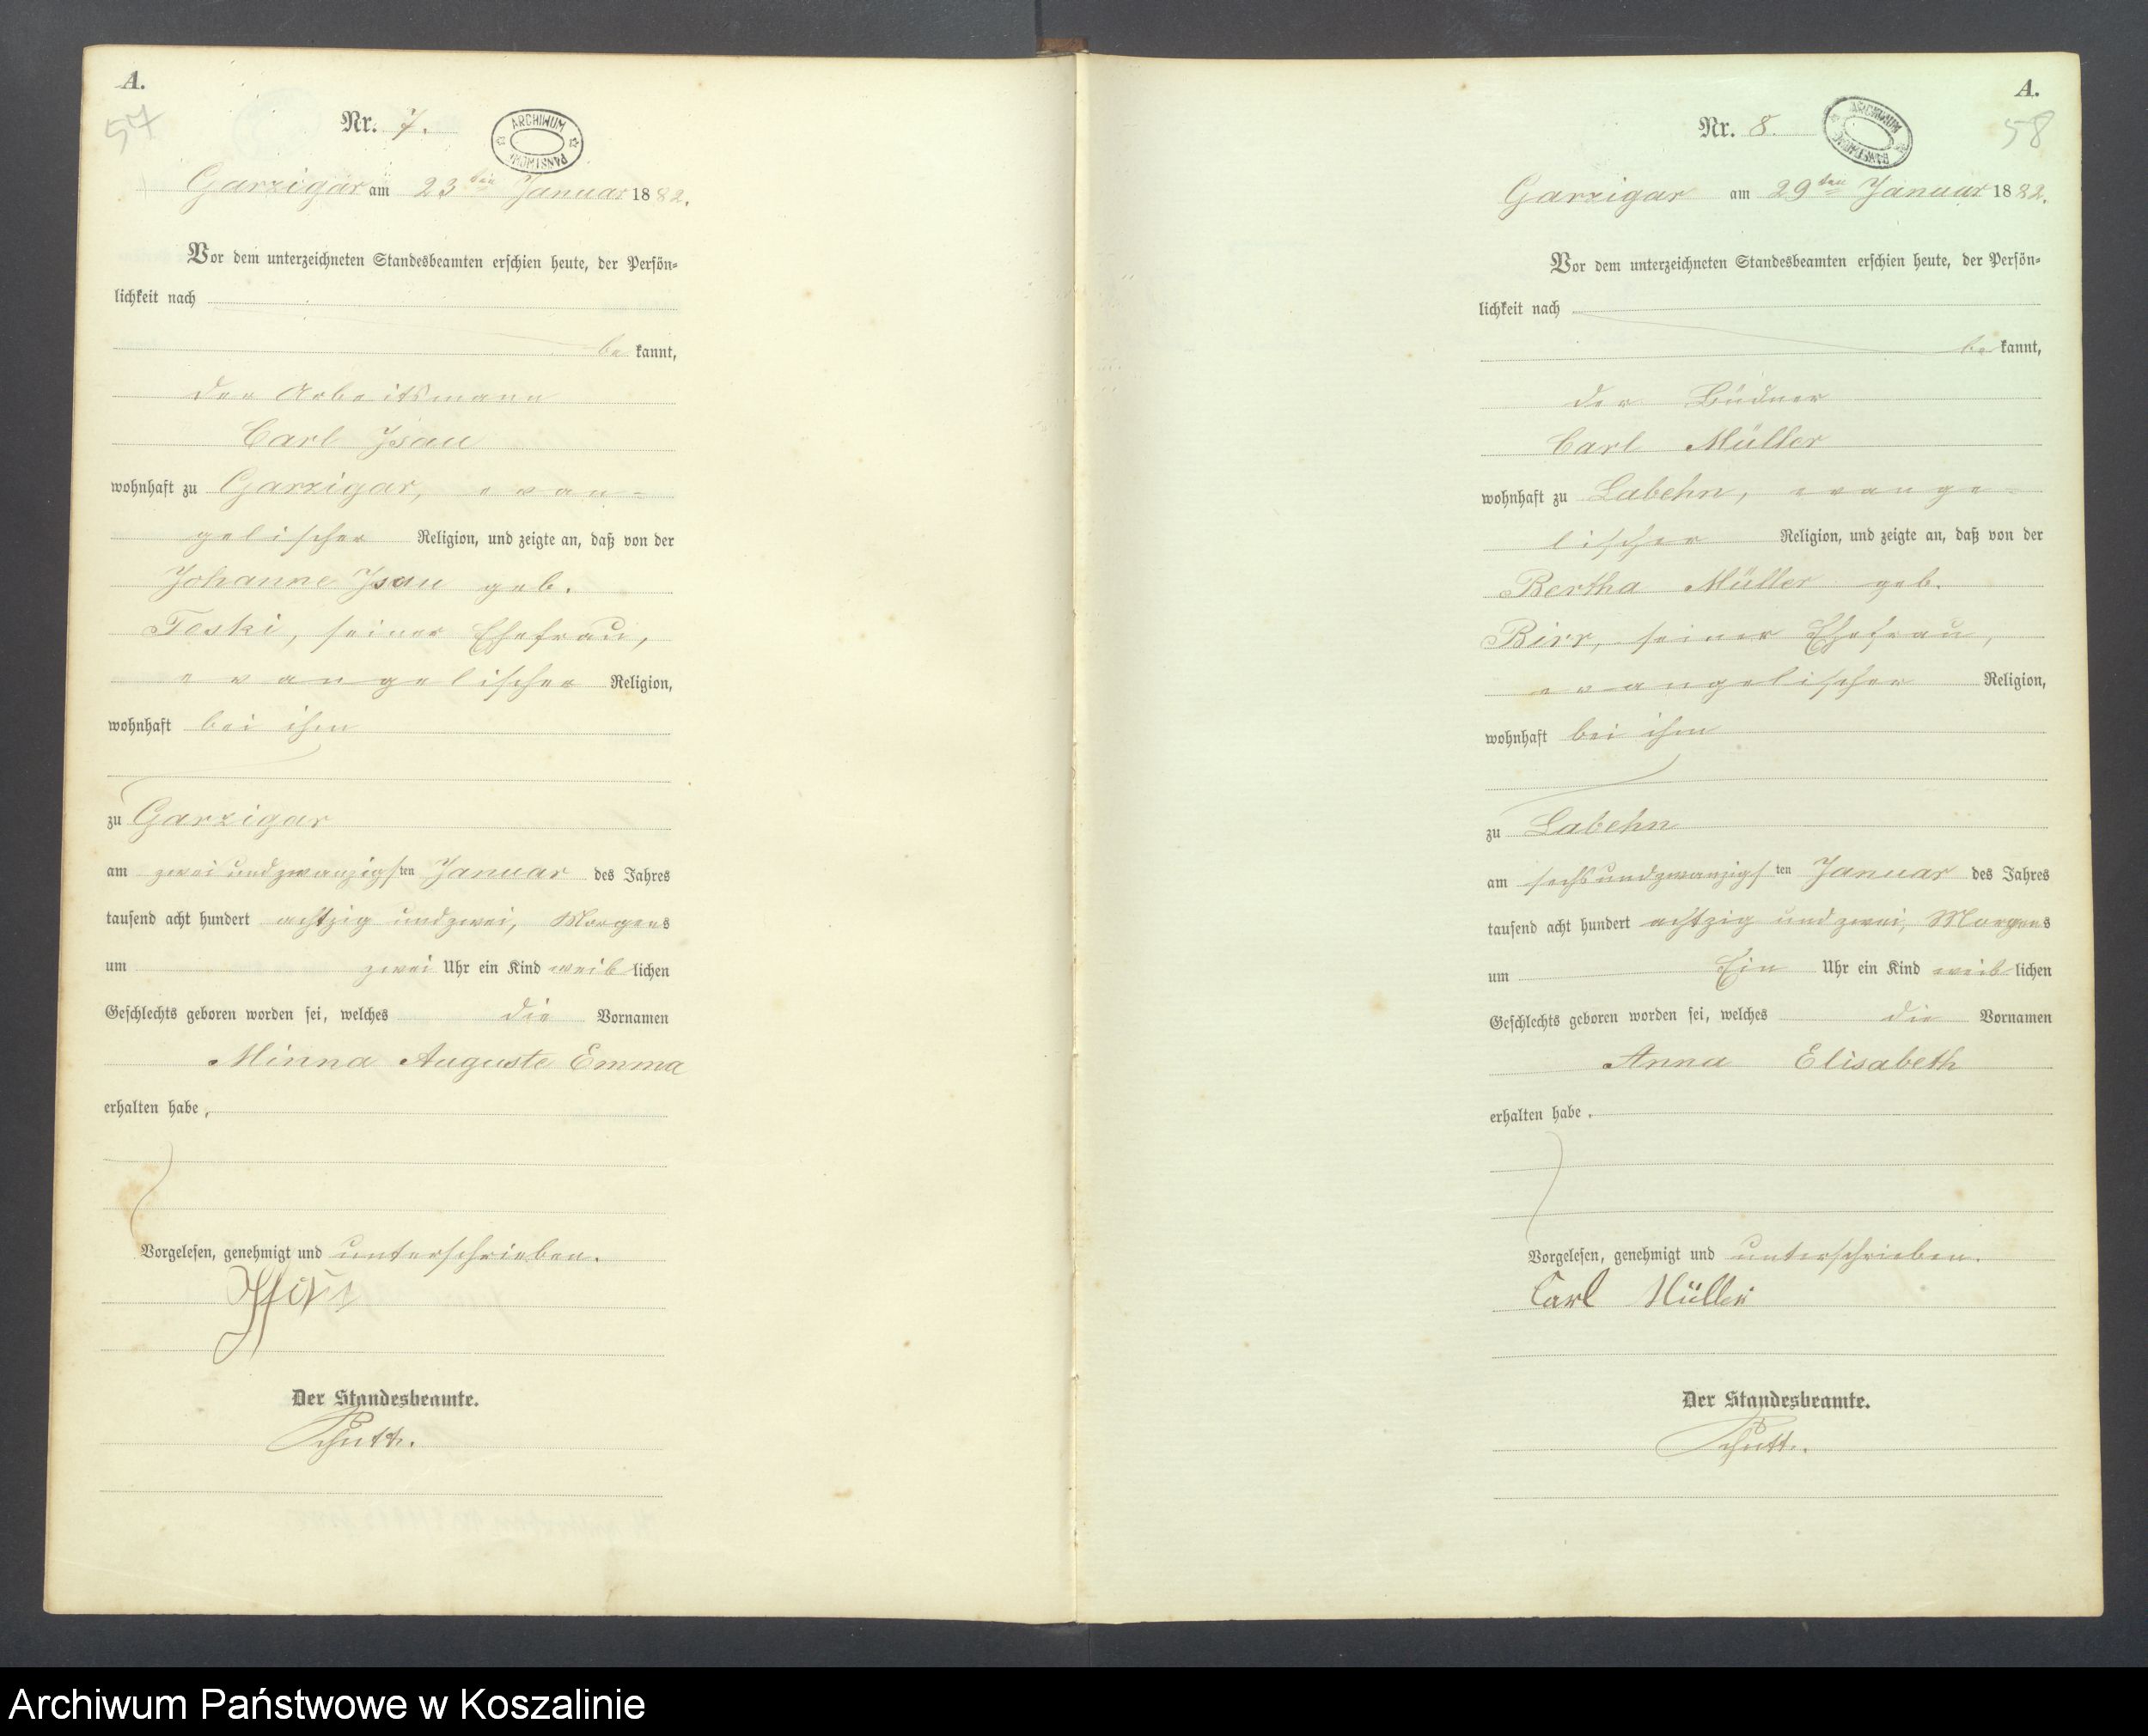 A.
57
Nr. 7.
ARCHIWUM PAŃSTWOWE
Garzigar am 23ten Januar 1882.
Vor dem unterzeichneten Standesbeamten erschien heute, der Persön-
lichkeit nach
bekannt,
der Arbeitsmann
Carl Isau
wohnhaft zu Garzigar, evan-
gelischer Religion, und zeigte an, daß von der
Johanne Isau geb.
Toski, seiner Ehefrau,
evangelischer Religion,
wohnhaft bei ihm
zu Garzigar
am zwei und zwanzigsten Januar des Jahres
tausend acht hundert achtzig und zwei, Morgens
um zwei Uhr ein Kind weiblichen
Geschlechts geboren worden sei, welches die Vornamen
Minna Auguste Emma
erhalten habe,
Vorgelesen, genehmigt und unterschrieben.
Der Standesbeamte.
Schutt.
A.
58
Nr. 8.
ARCHIWUM PAŃSTWOWE
Garzigar am 29ten Januar 1882.
Vor dem unterzeichneten Standesbeamten erschien heute, der Persön-
lichkeit nach
bekannt,
der Büdner
Carl Müller
wohnhaft zu Labehn, evange-
lischer Religion, und zeigte an, daß von der
Bertha Müller geb.
Birr, seiner Ehefrau,
evangelischer Religion,
wohnhaft bei ihm
zu Labehn
am sechs und zwanzigsten Januar des Jahres
tausend acht hundert achtzig und zwei, Morgens
um Ein Uhr ein Kind weiblichen
Geschlechts geboren worden sei, welches die Vornamen
Anna Elisabeth
erhalten habe.
Vorgelesen, genehmigt und unterschrieben.
Carl Müller
Der Standesbeamte.
Schutt.
Archiwum Państwowe w Koszalinie